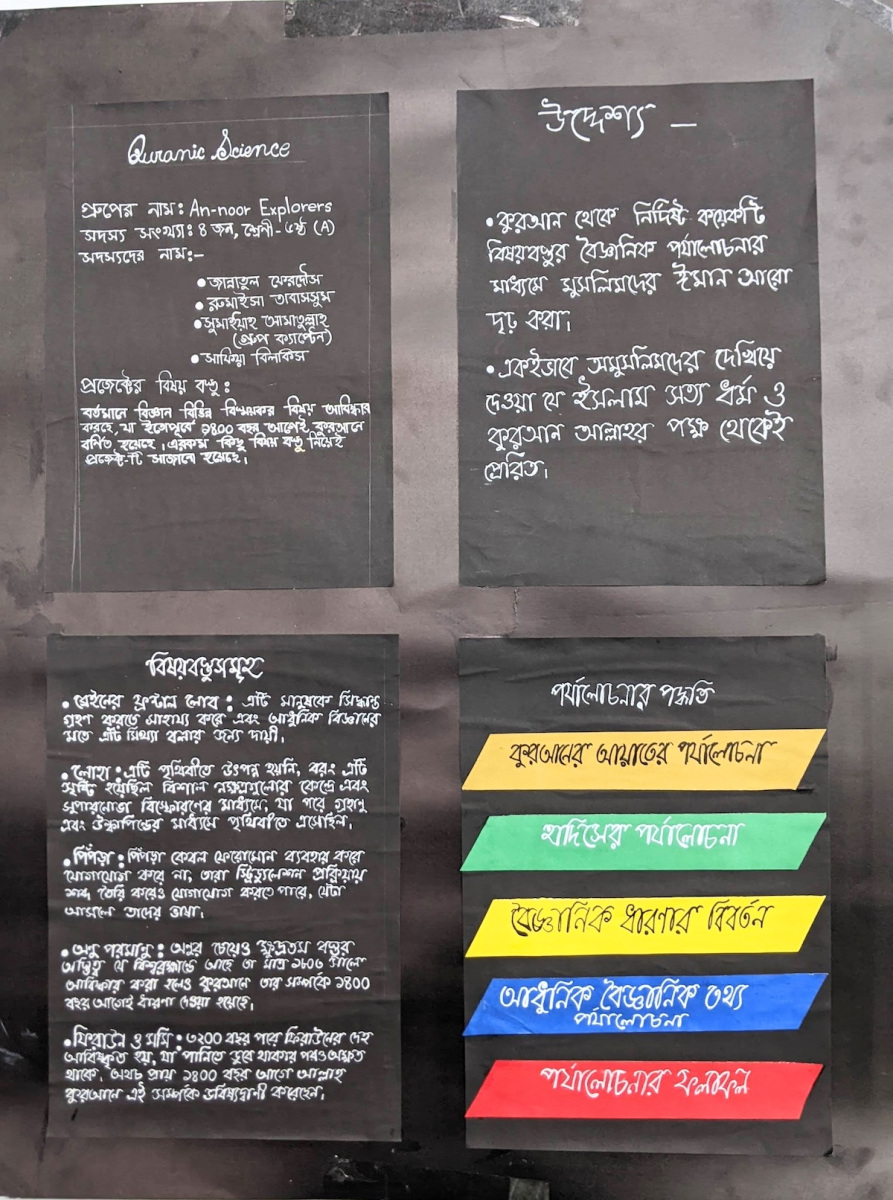 Quranic Science
গ্রুপের নাম: An-noor Explorers
সদস্য সংখ্যা: ৪ জন, শ্রেনী- ৬ষ্ঠ (A)
সদস্যদের নাম:-
• জান্নাতুল ফেরদৌস
• রুমাইসা তাবাসসুম
• সুমাইয়াহ আমাতুল্লাহ
(গ্রুপ ক্যাপ্টেন)
• সাফিয়া বিলকিস
প্রজেক্টের বিষয় বস্তু:
বর্তমানে বিজ্ঞান বিভিন্ন বিস্ময়কর বিষয় আবিষ্কার
করছে, যা ইতোপূর্বে ১৪০০ বছর আগেই কুরআনে
বর্ণিত হয়েছে। এরকম কিছু বিষয় বস্তু নিয়েই
প্রজেক্ট-টি সাজানো হয়েছে।
উদ্দেশ্য —
• কুরআন থেকে নির্দিষ্ট কয়েকটি
বিষয়বস্তুর বৈজ্ঞানিক পর্যালোচনার
মাধ্যমে মুসলিমদের ঈমান আরো
দৃঢ় করা।
• একইভাবে অমুসলিমদের দেখিয়ে
দেওয়া যে ইসলাম সত্য ধর্ম ও
কুরআন আল্লাহর পক্ষ থেকেই
প্রেরিত।
বিষয়বস্তুসমূহ
• ব্রেইনের ফ্রন্টাল লোব: এটি মানুষকে সিদ্ধান্ত
গ্রহণ করতে সাহায্য করে এবং আধুনিক বিজ্ঞানের
মতে এটি মিথ্যা বলার জন্য দায়ী।
• লোহা: এটি পৃথিবীতে উৎপন্ন হয়নি, বরং এটি
সৃষ্টি হয়েছিল বিশাল নক্ষত্রগুলোর কেন্দ্রে এবং
সুপারনোভা বিস্ফোরণের মাধ্যমে, যা পরে গ্রহাণু
এবং উল্কাপিন্ডের মাধ্যমে পৃথিবীতে এসেছিল।
• পিঁপড়া: পিঁপড়া কেবল ফেরোমোন ব্যবহার করে
যোগাযোগ করে না, তারা স্ট্রিডুলেশন প্রক্রিয়ায়
শব্দ তৈরি করেও যোগাযোগ করতে পারে, যেটা
আসলে তাদের ভাষা।
• অনু পরমানু: অনুর চেয়েও ক্ষুদ্রতম বস্তুর
অস্তিত্ব যে বিশ্বব্রহ্মান্ডে আছে তা মাত্র ১৮০৩ সালে
আবিষ্কার করা হলেও কুরআনে তার সম্পর্কে ১৪০০
বছর আগেই ধারণা দেওয়া হয়েছে।
• ফিরাউন ও মমি: ৩২০০ বছর পরে ফিরাউনের দেহ
আবিষ্কৃত হয়, যা পানিতে ডুবে থাকার পরও অক্ষত
থাকে, অথচ প্রায় ১৪০০ বছর আগে আল্লাহ
কুরআনে এই সম্পর্কে ভবিষ্যদ্বানী করেছেন।
পর্যালোচনার পদ্ধতি
কুরআনের আয়াতের পর্যালোচনা
হাদিসের পর্যালোচনা
বৈজ্ঞানিক ধারণার বিবর্তন
আধুনিক বৈজ্ঞানিক তথ্য
পর্যালোচনা
পর্যালোচনার ফলাফল